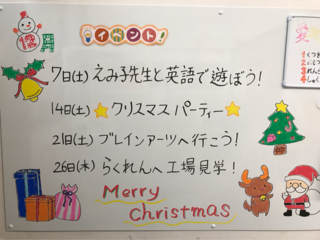 12月
イベント!
7日(土) えみ子先生と英語で遊ぼう!
14日(土) ★クリスマスパーティー★
21日(土) ブレインアーツへ行こう!
26日(木) らくれんへ工場見学!
Merry
Christmas